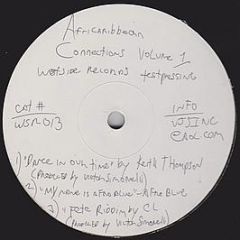 Africaribbean
Connections Volume 1
Westside Records testpressing
cat #
WSR013
INFO
VJSINC
@AOL.COM
1) "Dance in our time" by Keith Thompson
(Produced by Victor Simonelli)
2) "My name is Afro Blue" - Afro Blue
3) Fete Riddim by CL
(Produced by Victor Simonelli)